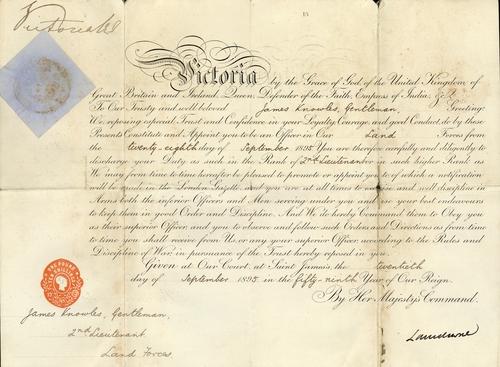 Victoria R
Victoria by the Grace of God of the United Kingdom of
Great Britain and Ireland, Queen, Defender of the Faith, Empress of India, &c.
To Our Trusty and well beloved James Knowles, Gentleman, Greeting:
We, reposing especial Trust and Confidence in your Loyalty, Courage, and good Conduct, do by these
Presents Constitute and Appoint you to be an Officer in Our Land Forces from
the twenty-eighth day of September 1895. You are therefore carefully and diligently to
discharge your Duty as such in the Rank of 2nd Lieutenant or in such higher Rank as
We may from time to time hereafter be pleased to promote or appoint you to, of which a notification
will be made in the London Gazette, and you are at all times to exercise and well discipline in
Arms both the inferior Officers and Men serving under you and use your best endeavours
to keep them in good Order and Discipline. And We do hereby Command them to Obey you
as their superior Officer, and you to observe and follow such Orders and Directions as from time
to time you shall receive from Us, or any your superior Officer, according to the Rules and
Discipline of War, in pursuance of the Trust hereby reposed in you.
Given at Our Court, at Saint James's, the twentieth
day of September 1895 in the fifty-ninth Year of Our Reign.
By Her Majesty's Command.
ONE POUND
TEN SHILLINGS
James Knowles, Gentleman,
2nd Lieutenant
Land Forces
Lansdowne